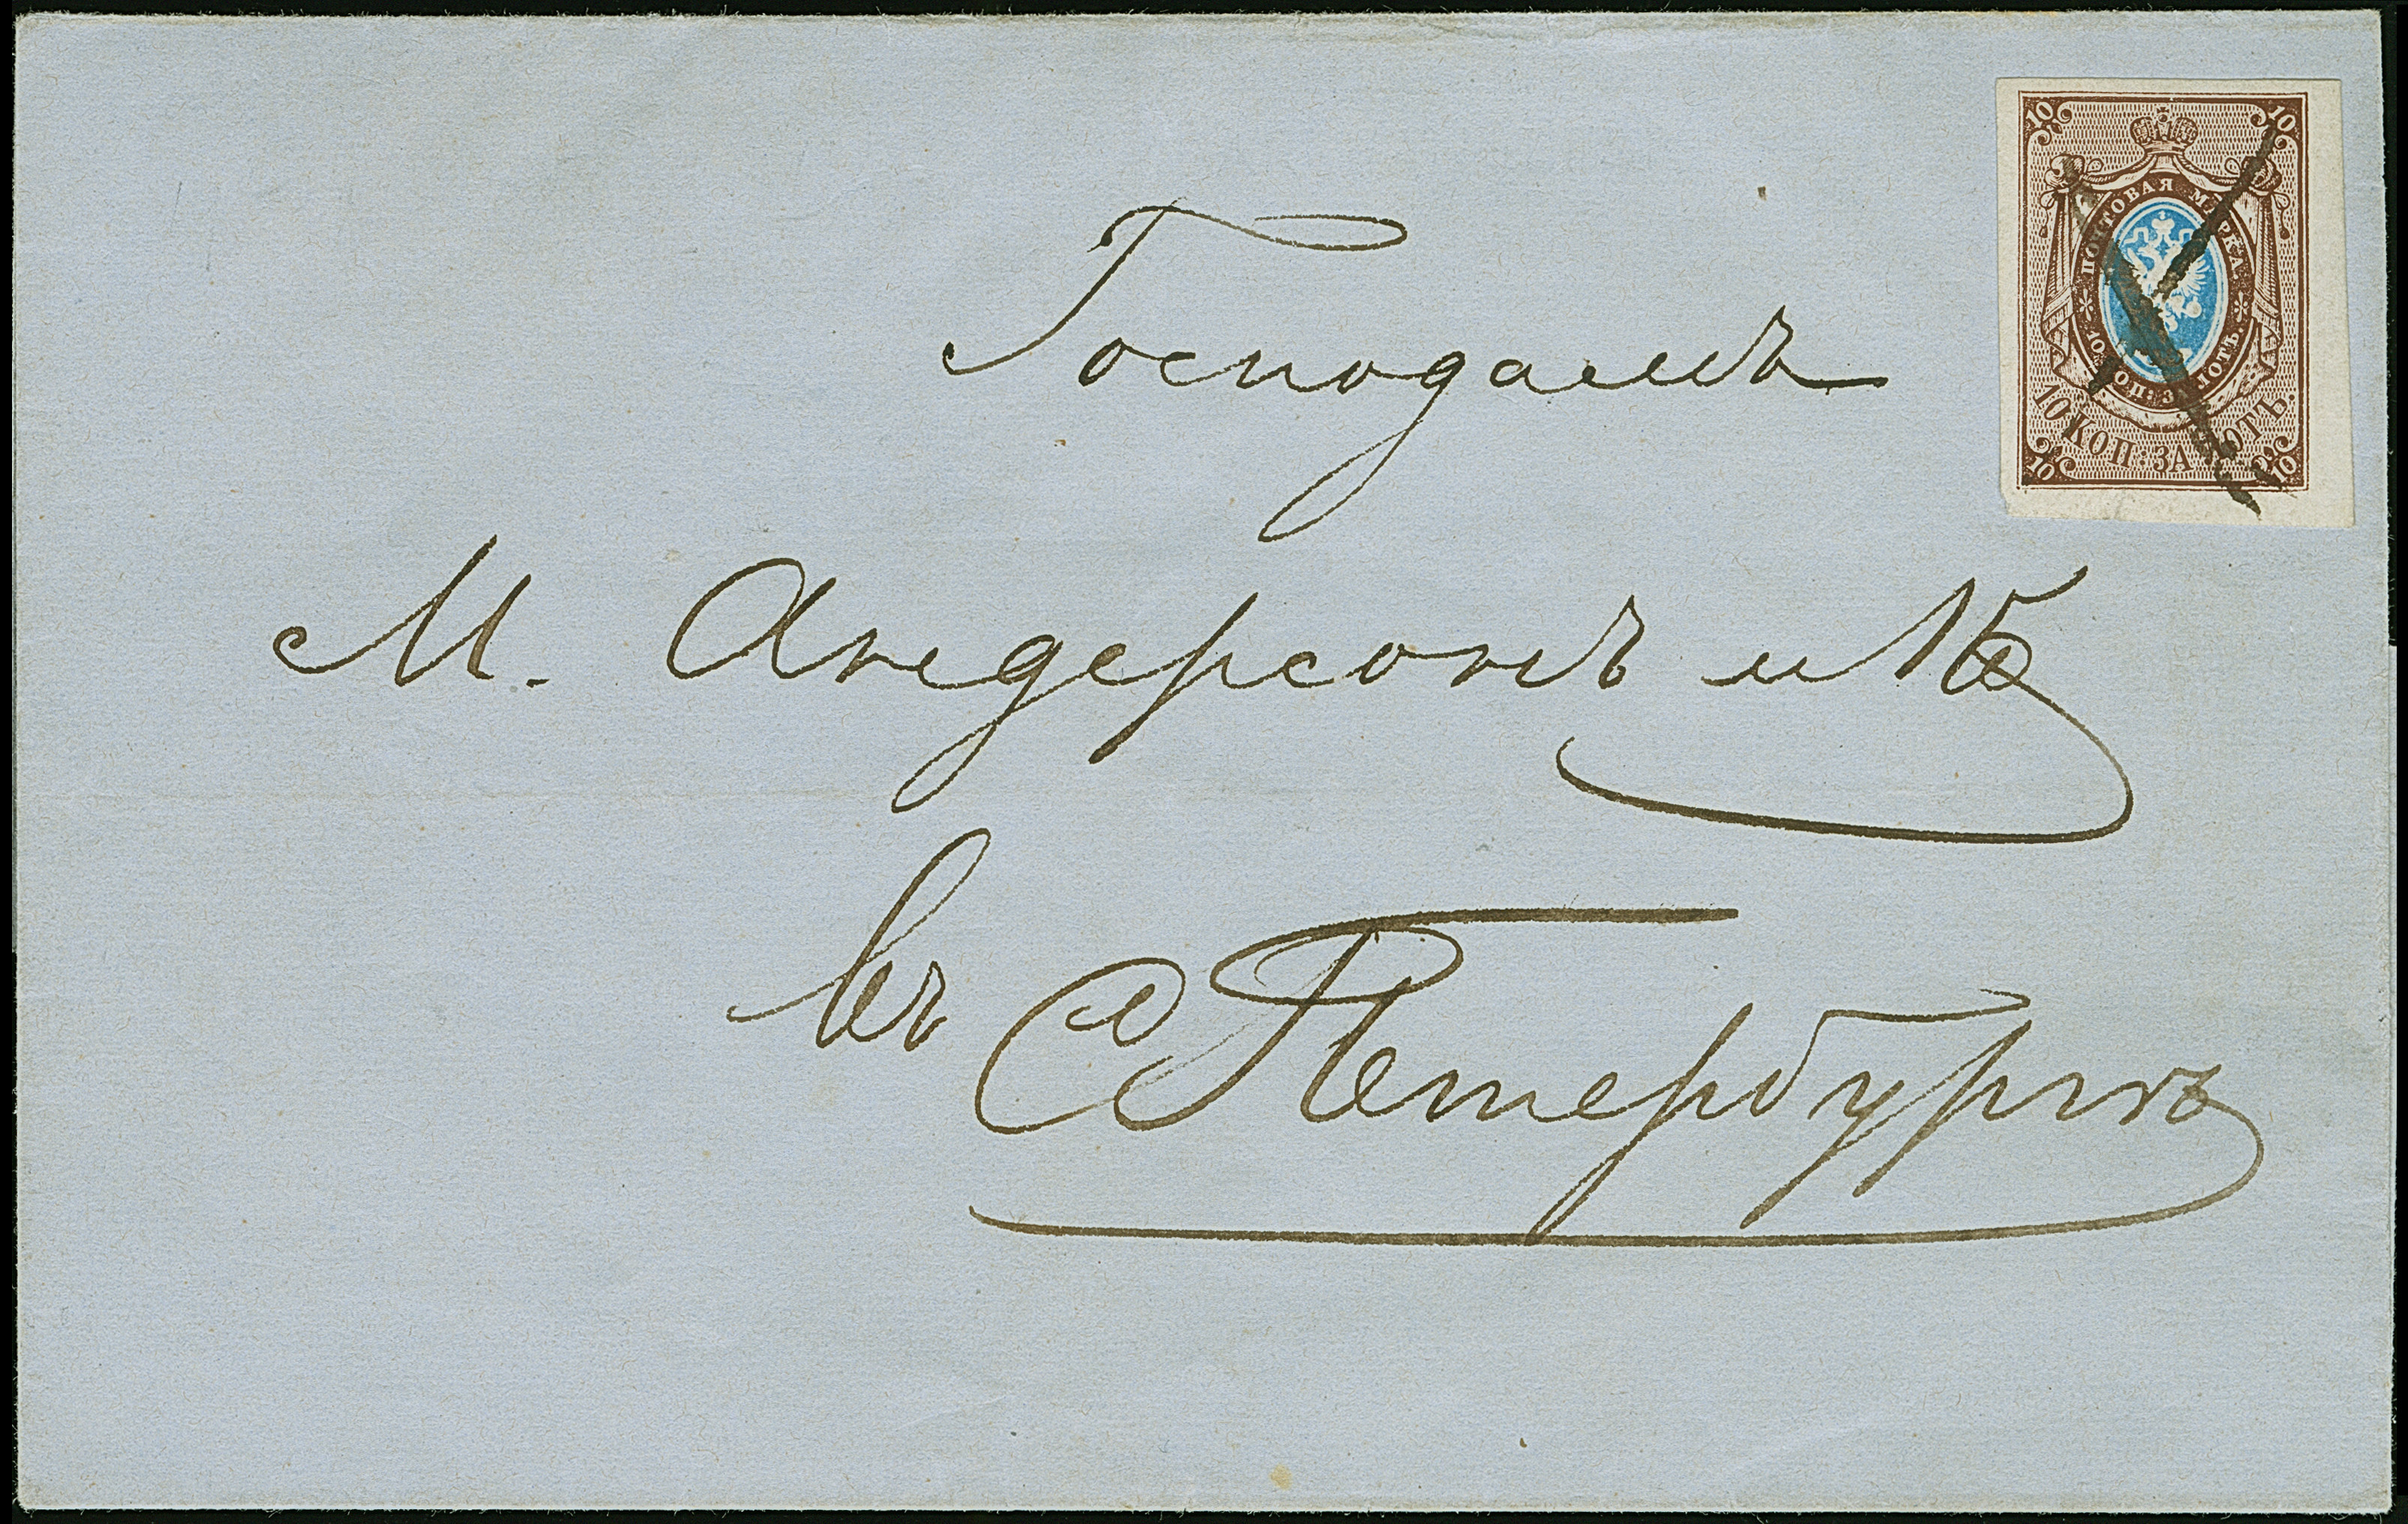 10 10
ПОЧТОВАЯ МАРКА
10 КОП. ЗА ЛОТЪ.
10 КОП: ЗА ЛОТЪ.
10 10
Господамъ
М. Андерсонъ и Ко
въ С Петербургѣ